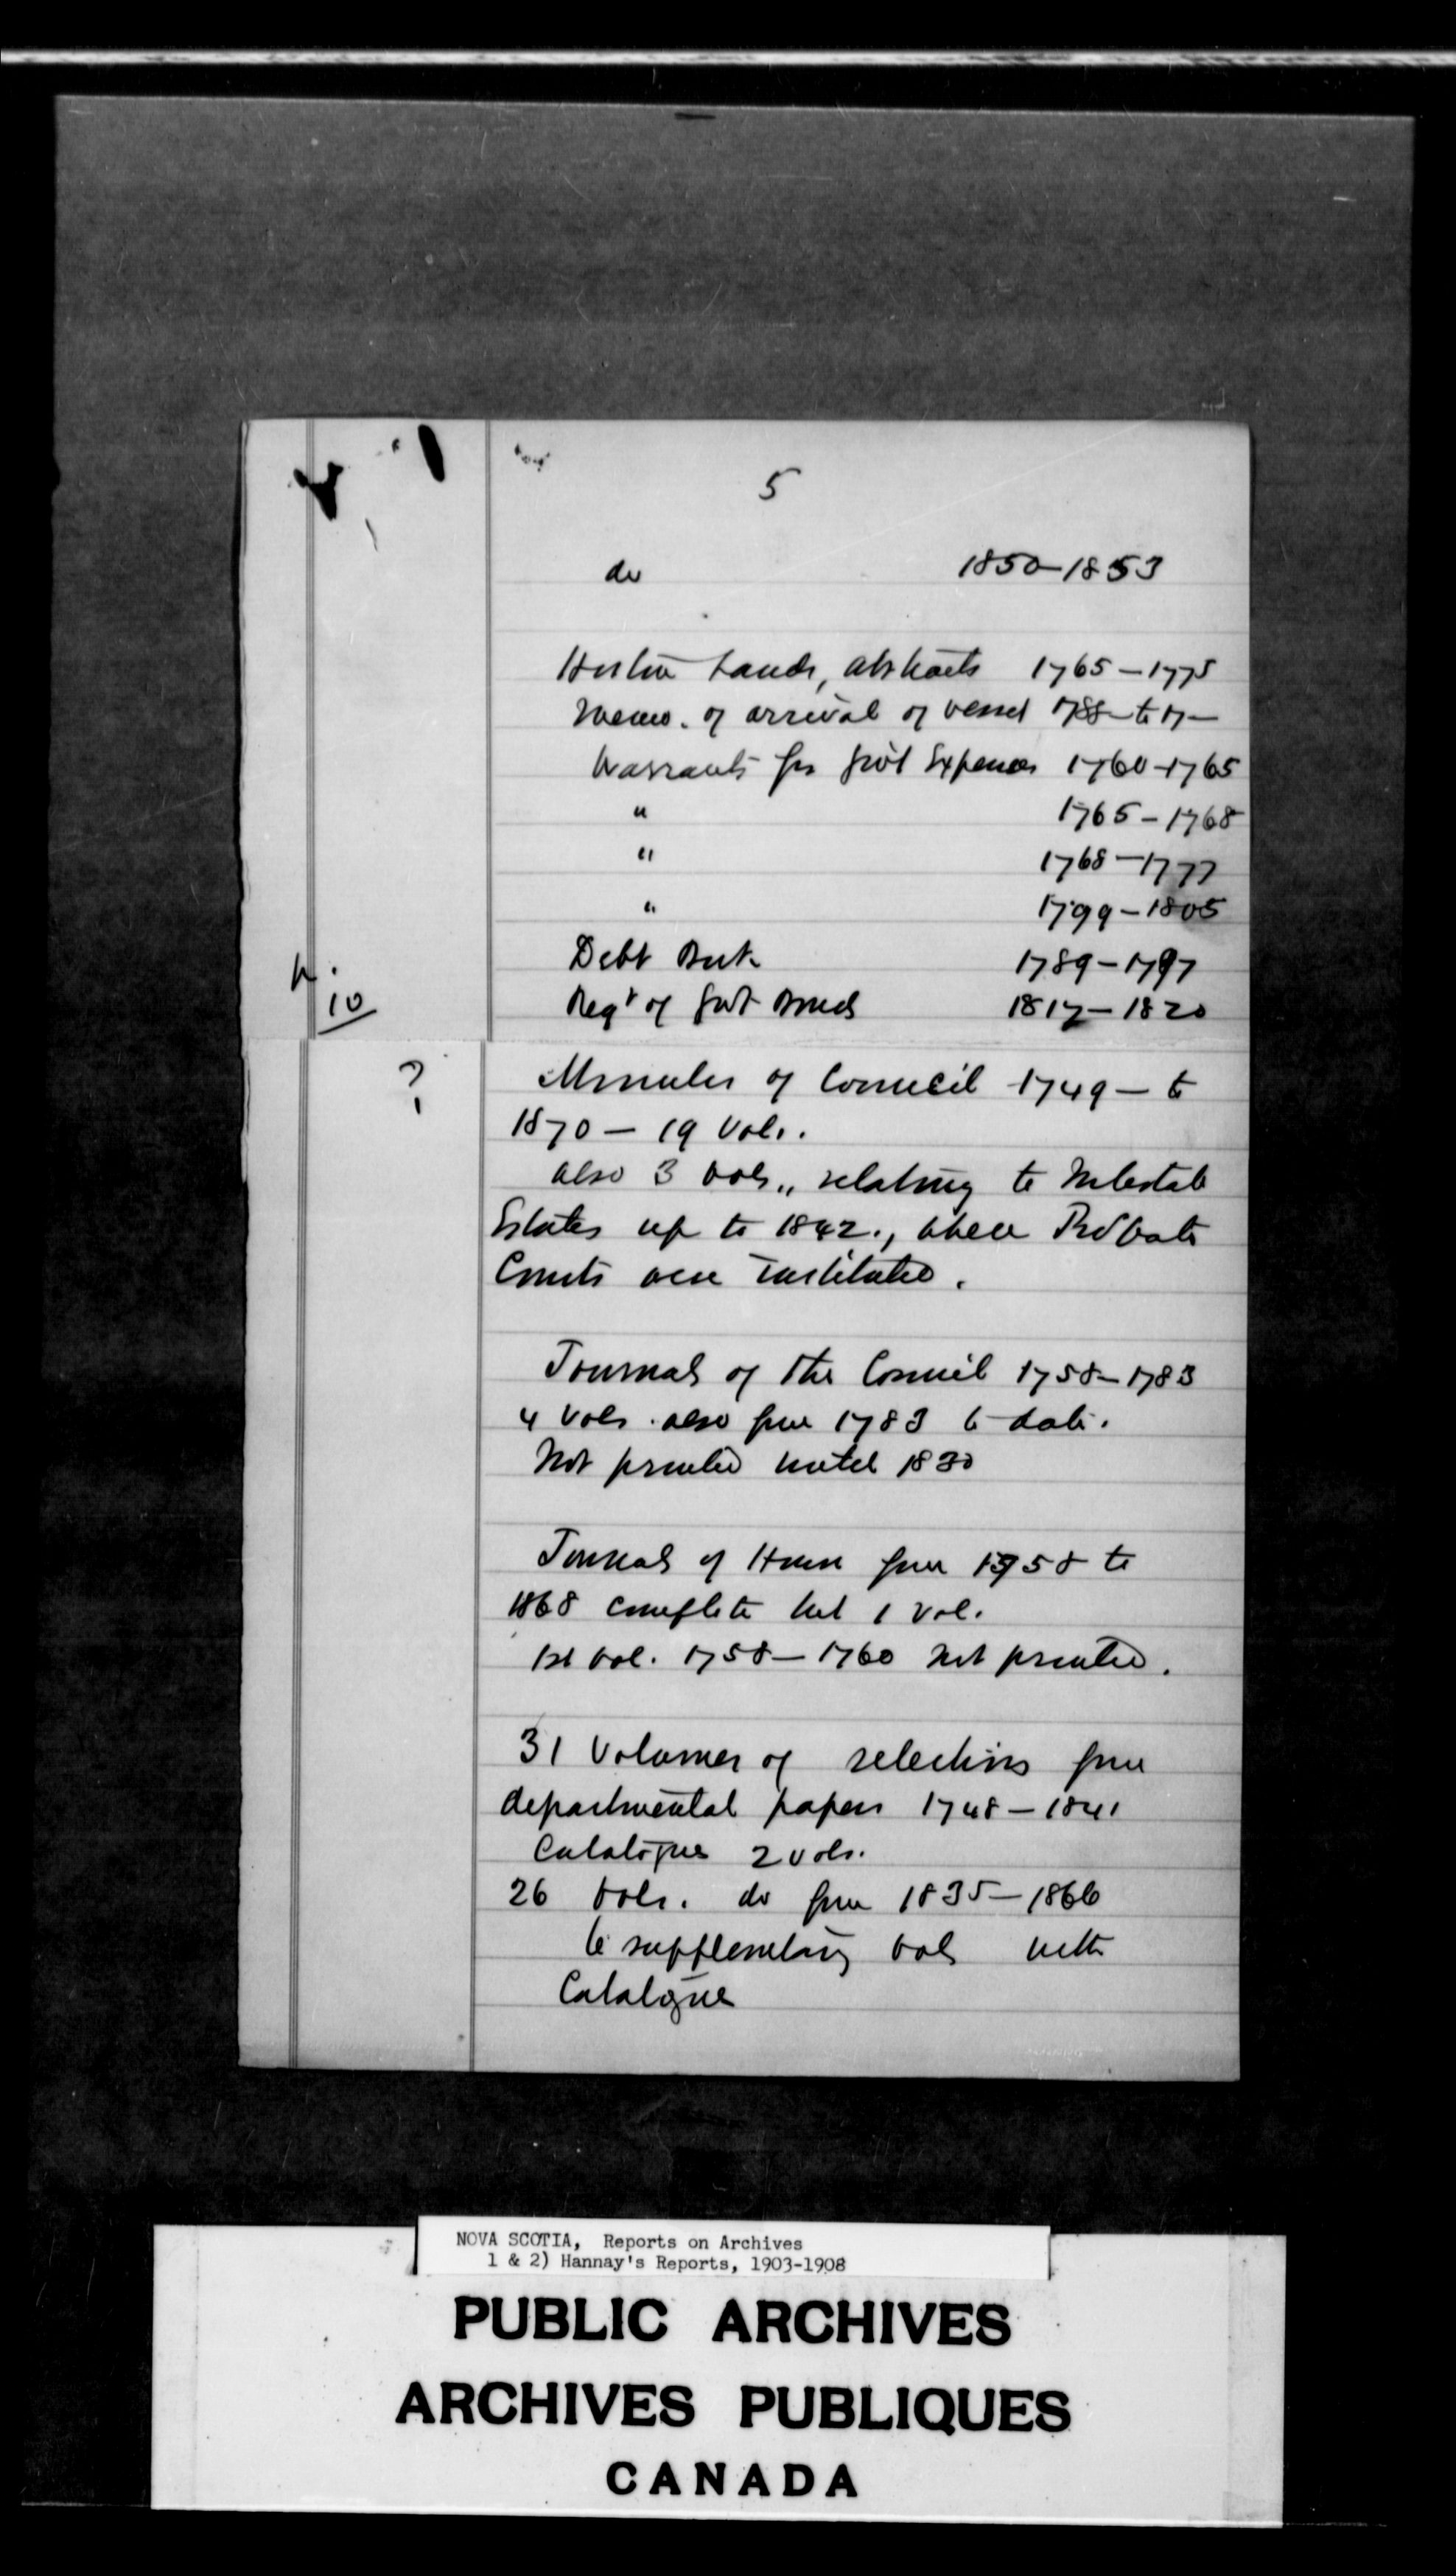 5
do 1850-1853
Horton Lands, Abstracts 1765-1775
Memo. of arrival of vessel 1788 to 17-
Warrants for Govt Expenses 1760-1765
" 1765-1768
" 1768-1777
" 1799-1805
Debt Book 1789-1797
10
Regr of Govt Bonds 1817-1820
?
Minutes of Council 1749- to
1870 - 19 Vols.
also 3 vols., relating to Intestate
Estates up to 1842., when Probate
Courts were instituted.
Journals of the Council 1758-1783
4 Vols. also from 1783 to date.
Not printed until 1830
Journals of House from 1758 to
1868 complete but 1 vol.
1st vol. 1758-1760 not printed.
31 Volumes of selections from
departmental papers 1748-1841
Catalogues 2 vols.
26 vols. do from 1835-1866
6 supplementary vols with
Catalogue
NOVA SCOTIA, Reports on Archives
1 & 2) Hannay's Reports, 1903-1908
PUBLIC ARCHIVES
ARCHIVES PUBLIQUES
CANADA